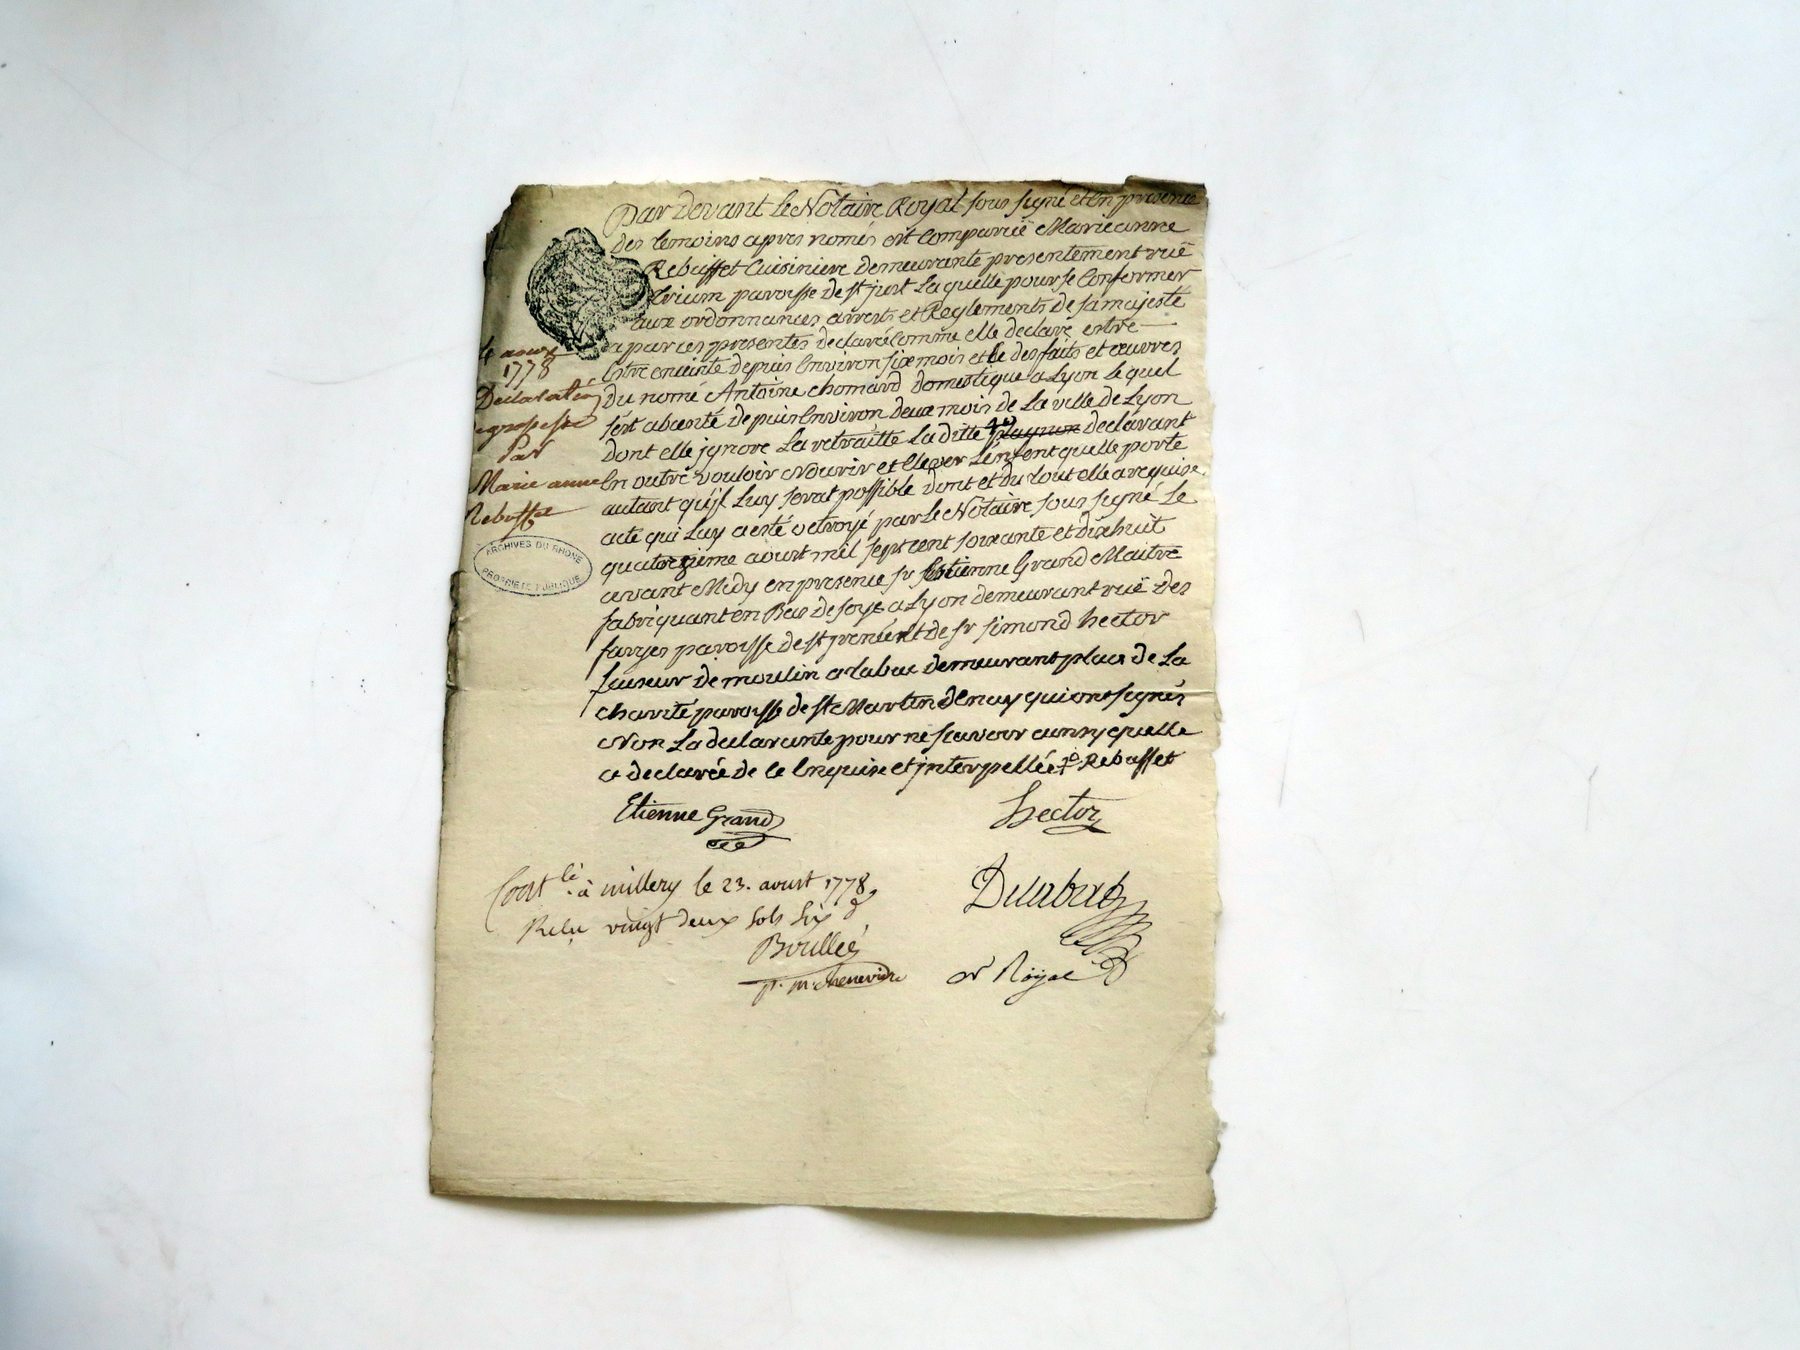 Par devant le Notaire Royal sous signé et en presence
des temoins apres només est comparüe Marieanne
Rebuffet Cuisiniere demeurante presentement ruë
trium paroisse de st just laquelle pour se Conformer
aux ordonnances arrests et Reglements de sa majesté
a par ces presentes declaré comme elle declare estre
Estre enceinte depuis Environ six mois et Ce des faits et œuvres
du nomé Antoine chomard domestique a Lyon le quel
s'est absenté depuis Environ deux mois de La ville de Lyon
dont elle jgnore La retraitte La ditte declarant
En outre vouloir Nourir et Elever L'enfent quelle porte
autant qu'jl Luy serat possible dont et du tout elle a requise
acte qui Luy a esté octroyé par Le Notaire sous signé Le
quatorzieme aoust mil sept cent soixante et dixhuit
avant Midy en presence sr Estienne Grand Maitre
fabriquant en Bas de soye a Lyon demeurant ruë des
farges paroisse de st jrenée et de sr simond hector
faiseur de moulin a tabac demeurant place de La
charité paroisse de st Martin denay qui ont signés
Non La declarante pour ne scavoir a ce quelle
a declarée de ce Enquise et jnterpellée Rebuffet
4 aoux
1778
Declaration
de grossesse
Par
Marie anne
Rebuffet
ARCHIVES DU RHONE
PROPRIETE PUBLIQUE
Etienne Grand
hector
Contlé à millery le 23. aoust 1778
Relu vingt deux sols six d
Boullée
Delabat
p. m. chenevidre
Nr Royal